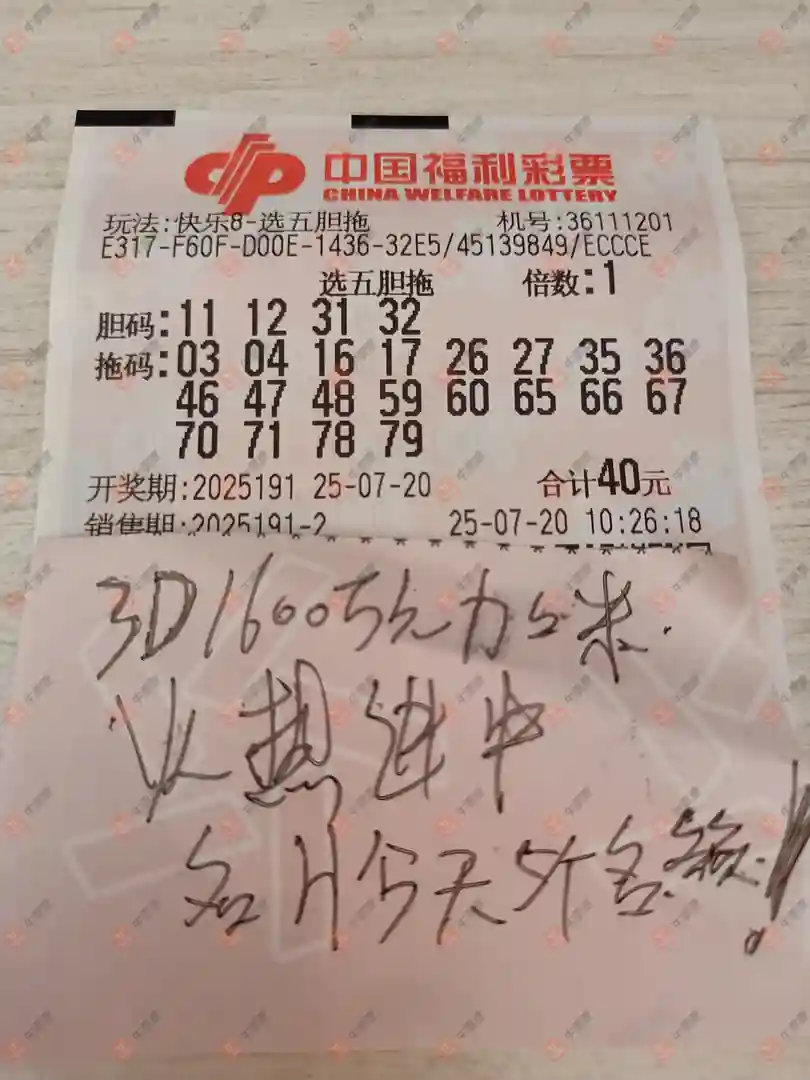 中国福利彩票
CHINA WELFARE LOTTERY
玩法:快乐8-选五胆拖 机号:36111201
E317-F60F-D00E-1436-32E5/45139849/ECCCE
选五胆拖 倍数:1
胆码:11 12 31 32
拖码:03 04 16 17 26 27 35 36
46 47 48 59 60 65 66 67
70 71 78 79
开奖期:2025191 25-07-20 合计40元
销售期:2025191-2 25-07-20 10:26:18
3D1600万元
火热进中
名片今天5个名额!